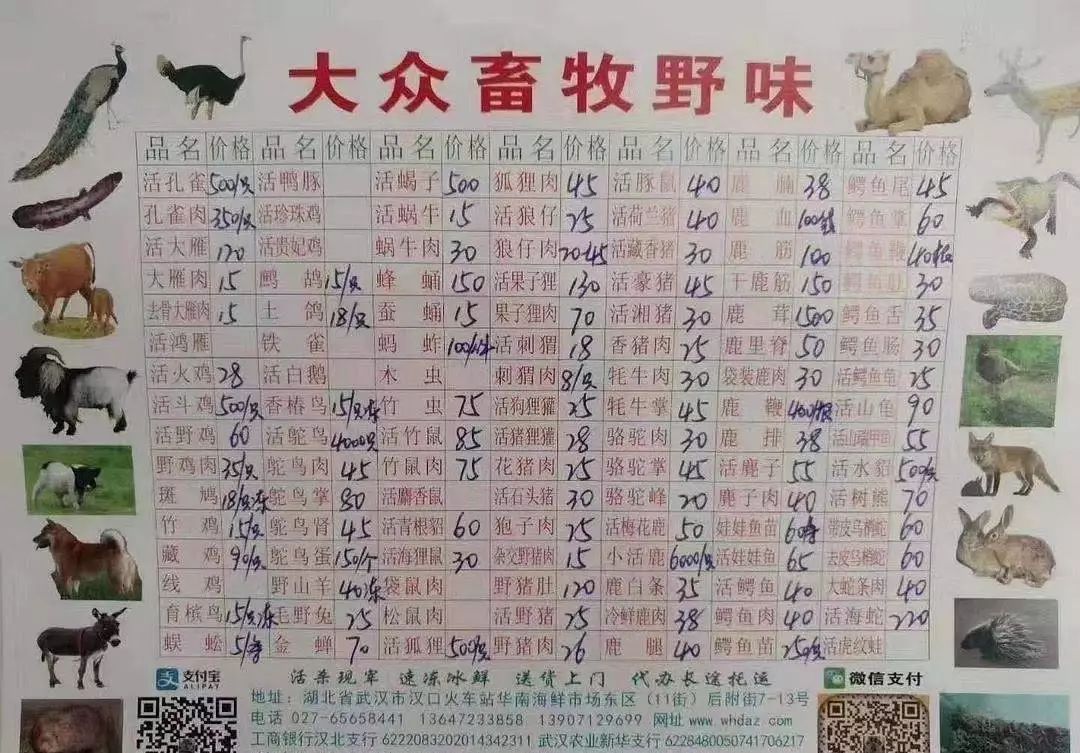 大众畜牧野味
品名 价格 品名 价格 品名 价格 品名 价格 品名 价格 品名 价格 品名 价格
活孔雀 500/只 活鸭豚 活蝎子 500 狐狸肉 45 活豚鼠 40 鹿腩 38 鳄鱼尾 45
孔雀肉 350/只 活珍珠鸡 活蜗牛 15 活狼仔 25 活荷兰猪 40 鹿血 鳄鱼掌 60
活大雁 120 活贵妃鸡 蜗牛肉 30 狼仔肉 活藏香猪 30 鹿筋 100 鳄鱼鞭
大雁肉 15 鹧鸪 15/只 蜂蛹 150 活果子狸 130 活豪猪 45 干鹿筋 150 鳄鱼肚 30
去骨大雁肉 15 土鸽 18/只 蚕蛹 15 果子狸肉 70 活湘猪 30 鹿茸 1500 鳄鱼舌 35
活鸿雁 铁雀 蚂蚱 活刺猬 18 香猪肉 25 鹿里脊 50 鳄鱼肠 30
活火鸡 28 活白鹅 木虫 刺猬肉 8/只 牦牛肉 30 袋装鹿肉 30 活鳄鱼龟 25
活斗鸡 500/只 香椿鸟 15/只冻 竹虫 75 活狗狸獾 25 牦牛掌 45 鹿鞭 活山龟 90
活野鸡 60 活鸵鸟 4000只 活竹鼠 85 活猪狸獾 28 骆驼肉 30 鹿排 38 活山瑞甲鱼 55
野鸡肉 35/只 鸵鸟肉 45 竹鼠肉 75 花猪肉 25 骆驼掌 45 活麂子 55 活水貂 500/只
斑鸠 18/只冻 鸵鸟掌 80 活麝香鼠 活石头猪 30 骆驼峰 20 麂子肉 40 活树熊 70
竹鸡 15/只 鸵鸟肾 45 活青根貂 60 狍子肉 25 活梅花鹿 50 娃娃鱼苗 带皮乌梢蛇 60
藏鸡 90/只 鸵鸟蛋 150/个 活海狸鼠 30 杂交野猪肉 15 小活鹿 6000/只 活娃娃鱼 65 去皮乌梢蛇 60
线鸡 野山羊 40冻 袋鼠肉 野猪肚 120 鹿白条 35 活鳄鱼 40 大蛇条肉 40
育槟鸟 15/只冻 毛野兔 25 松鼠肉 活野猪 25 冷鲜鹿肉 38 鳄鱼肉 40 活海蛇 220
蜈蚣 金蝉 70 活狐狸 500/只 野猪肉 26 鹿腿 40 鳄鱼苗 250/只 活虎纹蛙
支付宝
ALIPAY
活杀现宰 速冻冰鲜 送货上门 代办长途托运
微信支付
地址：湖北省武汉市汉口火车站华南海鲜市场东区（11街）后附街7-13号
电话 027-65658441 13647233858 13907129699 网址 www.whdaz.com
工商银行汉北支行 6222083202014342311 武汉农业新华支行 6228480050741706217